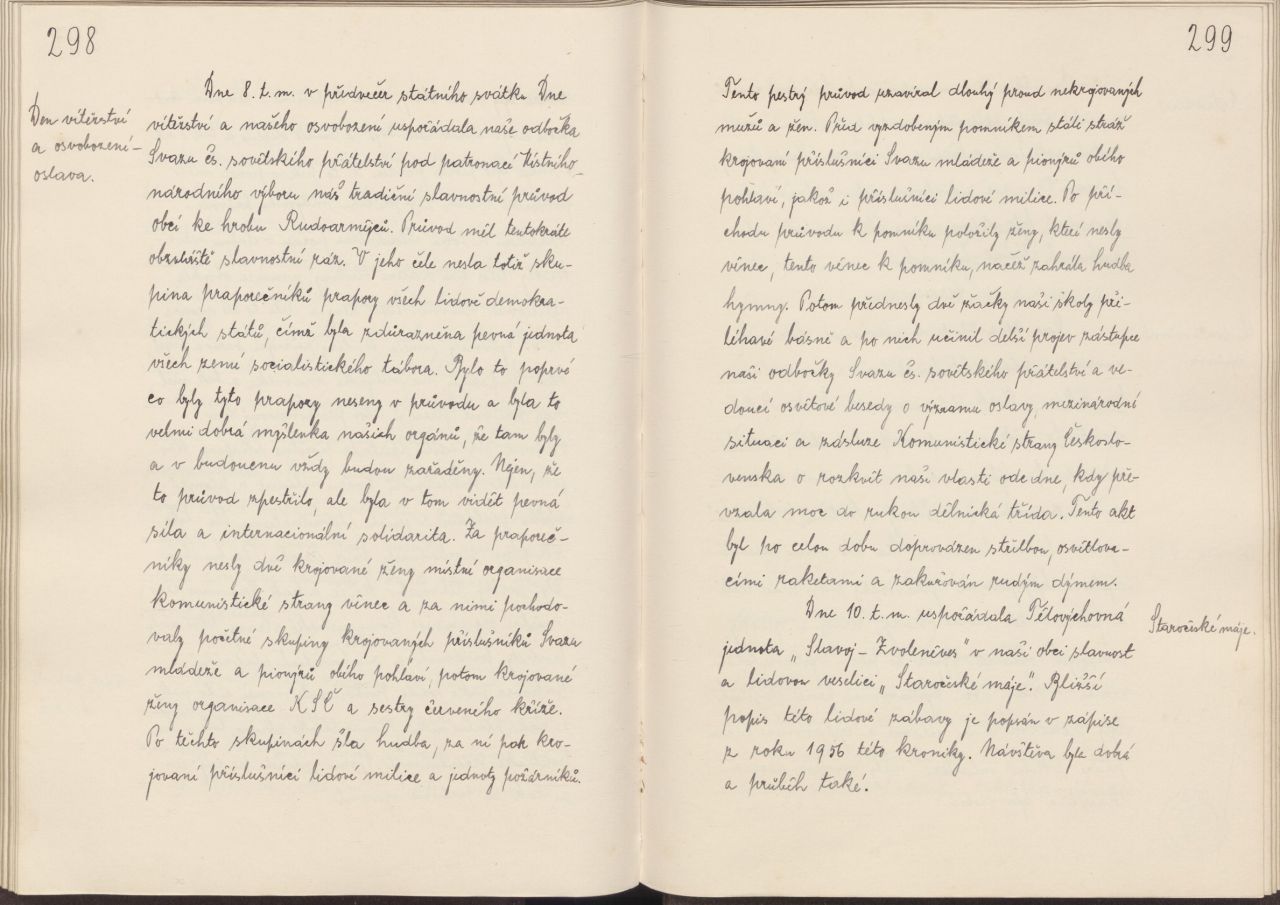 298
Den vítězství
a osvobození –
oslava.
Dne 8. t. m. v předvečer státního svátku Dne
vítězství a našeho osvobození uspořádala naše odbočka
Svazu čs. sovětského přátelství pod patronací Místního
národního výboru náš tradiční slavnostní průvod
obcí ke hrobu Rudoarmějců. Průvod měl tentokráte
obzvláště slavnostní ráz. V jeho čele nesla totiž sku-
pina praporečníků prapory všech lidově demokra-
tických států, čímž byla zdůrazněna pevná jednota
všech zemí socialistického tábora. Bylo to poprvé
co byly tyto prapory neseny v průvodu a byla to
velmi dobrá myšlenka našich orgánů, že tam byly
a v budoucnu vždy budou zařaděny. Nejen, že
to průvod zpestřilo, ale byla v tom vidět pevná
síla a internacionální solidarita. Za praporeč-
níky nesly dvě krojované ženy místní organisace
komunistické strany věnec a za nimi pochodo-
valy početné skupiny krojovaných příslušníků Svazu
mládeže a pionýrů obého pohlaví, potom krojované
ženy organisace KSČ a sestry červeného kříže.
Po těchto skupinách šla hudba, za ní pak kro-
jovaní příslušníci lidové milice a jednoty požárníků.
299
Tento pestrý průvod uzavíral dlouhý proud nekrojovaných
mužů a žen. Před vyzdobeným pomníkem stáli stráž
krojovaní příslušníci Svazu mládeže a pionýrů obého
pohlaví, jakož i příslušníci lidové milice. Po pří-
chodu průvodu k pomníku položily ženy, kteří nesly
věnec, tento věnec k pomníku, načež zahrála hudba
hymny. Potom přednesly dvě žačky naší školy při-
léhavé básně a po nich učinil delší projev zástupce
naší odbočky Svazu čs. sovětského přátelství a ve-
doucí osvětové besedy o významu oslavy mezinárodní
situaci a zásluze Komunistické strany Českoslo-
venska o rozkvět naší vlasti ode dne, kdy pře-
vzala moc do rukou dělnická třída. Tento akt
byl po celou dobu doprovázen střelbou, osvětlova-
cími raketami a zakuřován rudým dýmem.
Dne 10. t. m. uspořádala Tělovýchovná
jednota „Slavoj – Zvoleněves" v naší obci slavnost
a lidovou veselici „Staročeské máje". Bližší
popis této lidové zábavy je popsán v zápise
z roku 1956 této kroniky. Návštěva byla dobrá
a průběh také.
Staročeské máje.